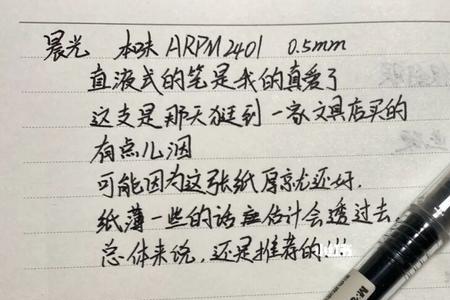 晨光 本味 ARPM2401 0.5mm
直液式的笔是我的真爱了
这支是那天逛到一家文具店买的
有点儿洇
可能因为这张纸厚就还好.
纸薄一些的话应估计会透过去.
总体来说,还是推荐的!!!